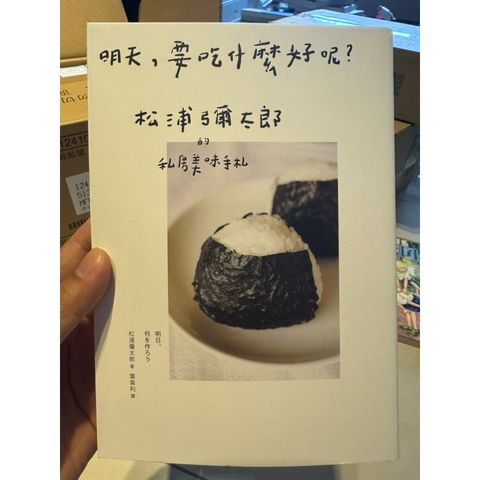 明天，要吃什麼好呢？
松浦彌太郎
的
私房美味手札
明日、
何を作ろう
松浦彌太郎 著 葉韋利 譯
12410